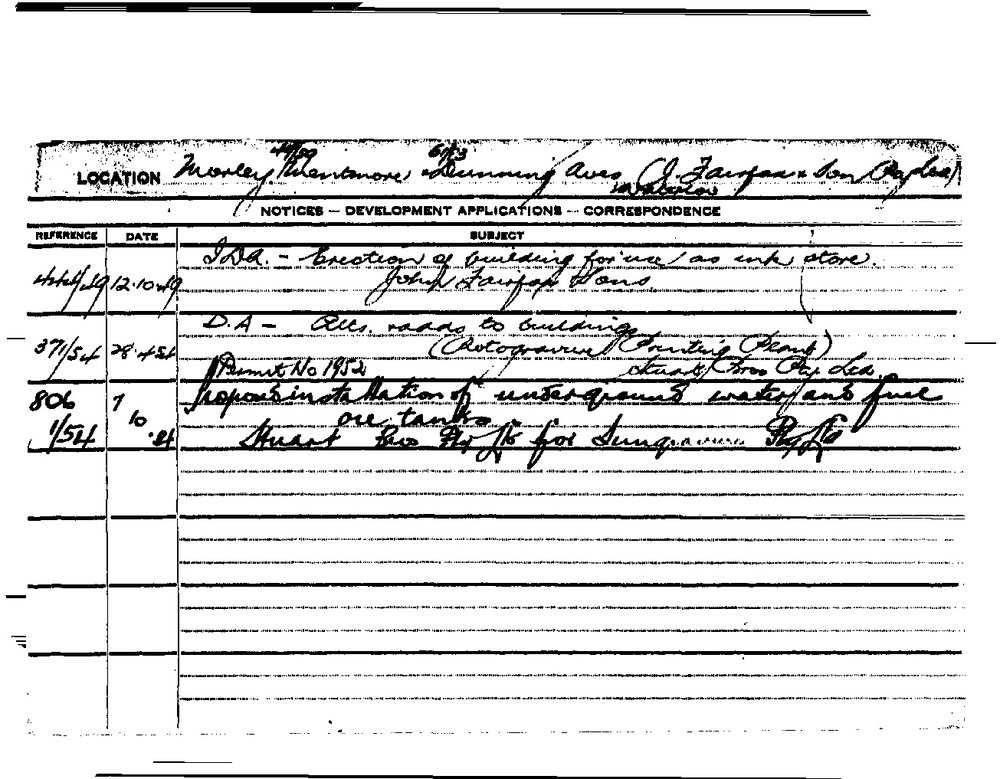 LOCATION Morley, Mentmore & Dunning Aves (J. Fairfax & Son Pty Ltd)
NOTICES — DEVELOPMENT APPLICATIONS — CORRESPONDENCE
REFERENCE DATE SUBJECT
I.D.A. - Erection of building for use as ink store.
12.10.49 John Fairfax & Sons
D.A - Alts. & adds to buildings
371/54 28.4.54 (Rotogravure Printing Plant)
Permit No 1952 Stuart Bros Pty Ltd
806 7 Proposed installation of underground water and fuel
10 oil tanks
1/54 .54 Stuart Bros Pty Ltd for Sungravure Pty Ltd